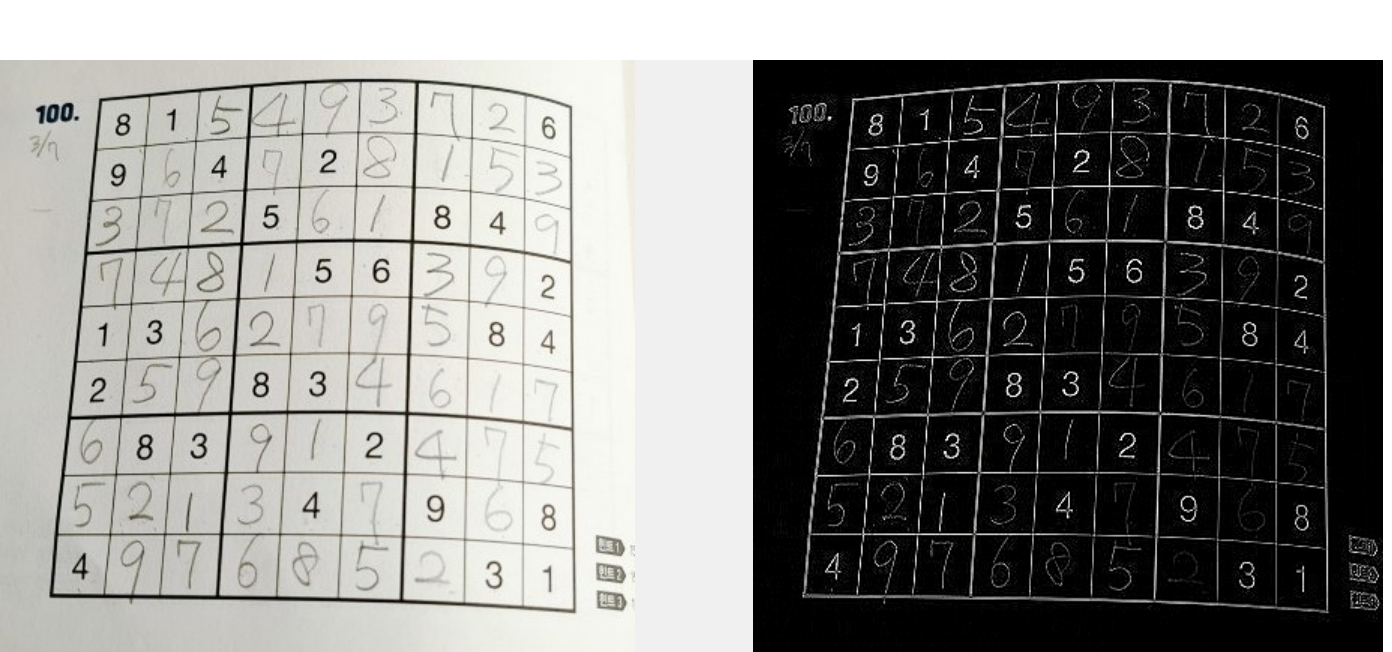 100.
3/7
8 1 5 4 9 3 7 2 6
9 6 4 7 2 8 1 5 3
3 7 2 5 6 1 8 4 9
7 4 8 1 5 6 3 9 2
1 3 6 2 7 9 5 8 4
2 5 9 8 3 4 6 1 7
6 8 3 9 1 2 4 7 5
5 2 1 3 4 7 9 6 8
4 9 7 6 8 5 2 3 1
힌트 1
힌트 2
힌트 3
100.
3/7
8 1 5 4 9 3 7 2 6
9 6 4 7 2 8 1 5 3
3 7 2 5 6 1 8 4 9
7 4 8 1 5 6 3 9 2
1 3 6 2 7 9 5 8 4
2 5 9 8 3 4 6 1 7
6 8 3 9 1 2 4 7 5
5 2 1 3 4 7 9 6 8
4 9 7 6 8 5 2 3 1